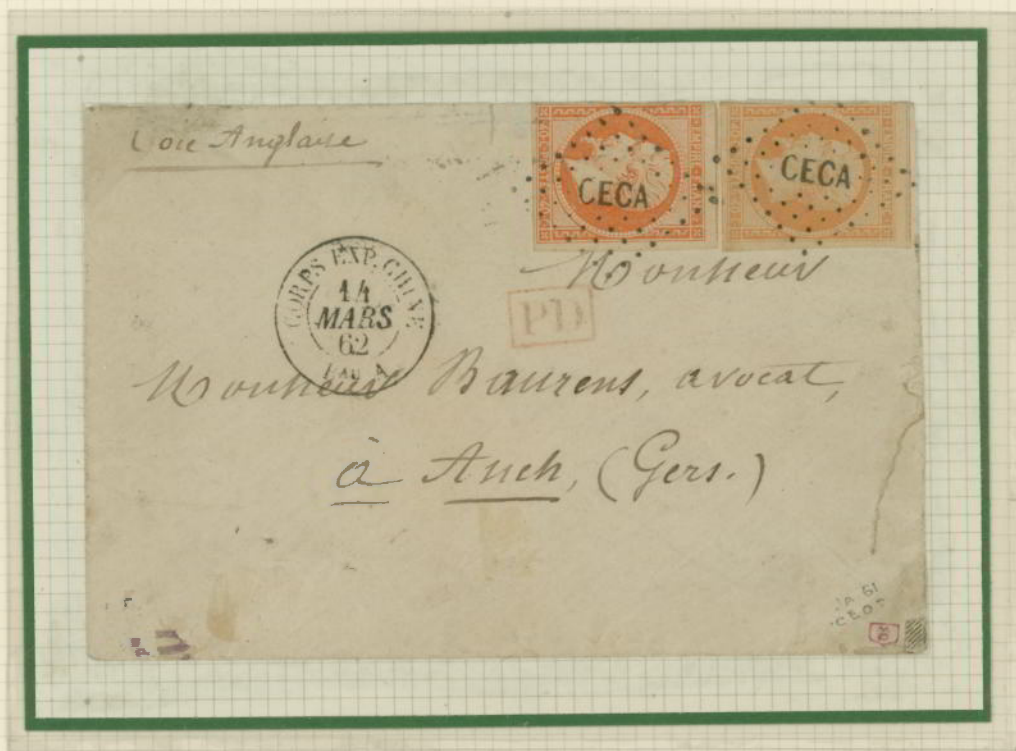 Voie Anglaise
CECA
CECA
CORPS EXP. CHINE
14
MARS
62
Bau A
Monsieur
PD
Monsieur Baurens, avocat,
à Auch, (Gers.)